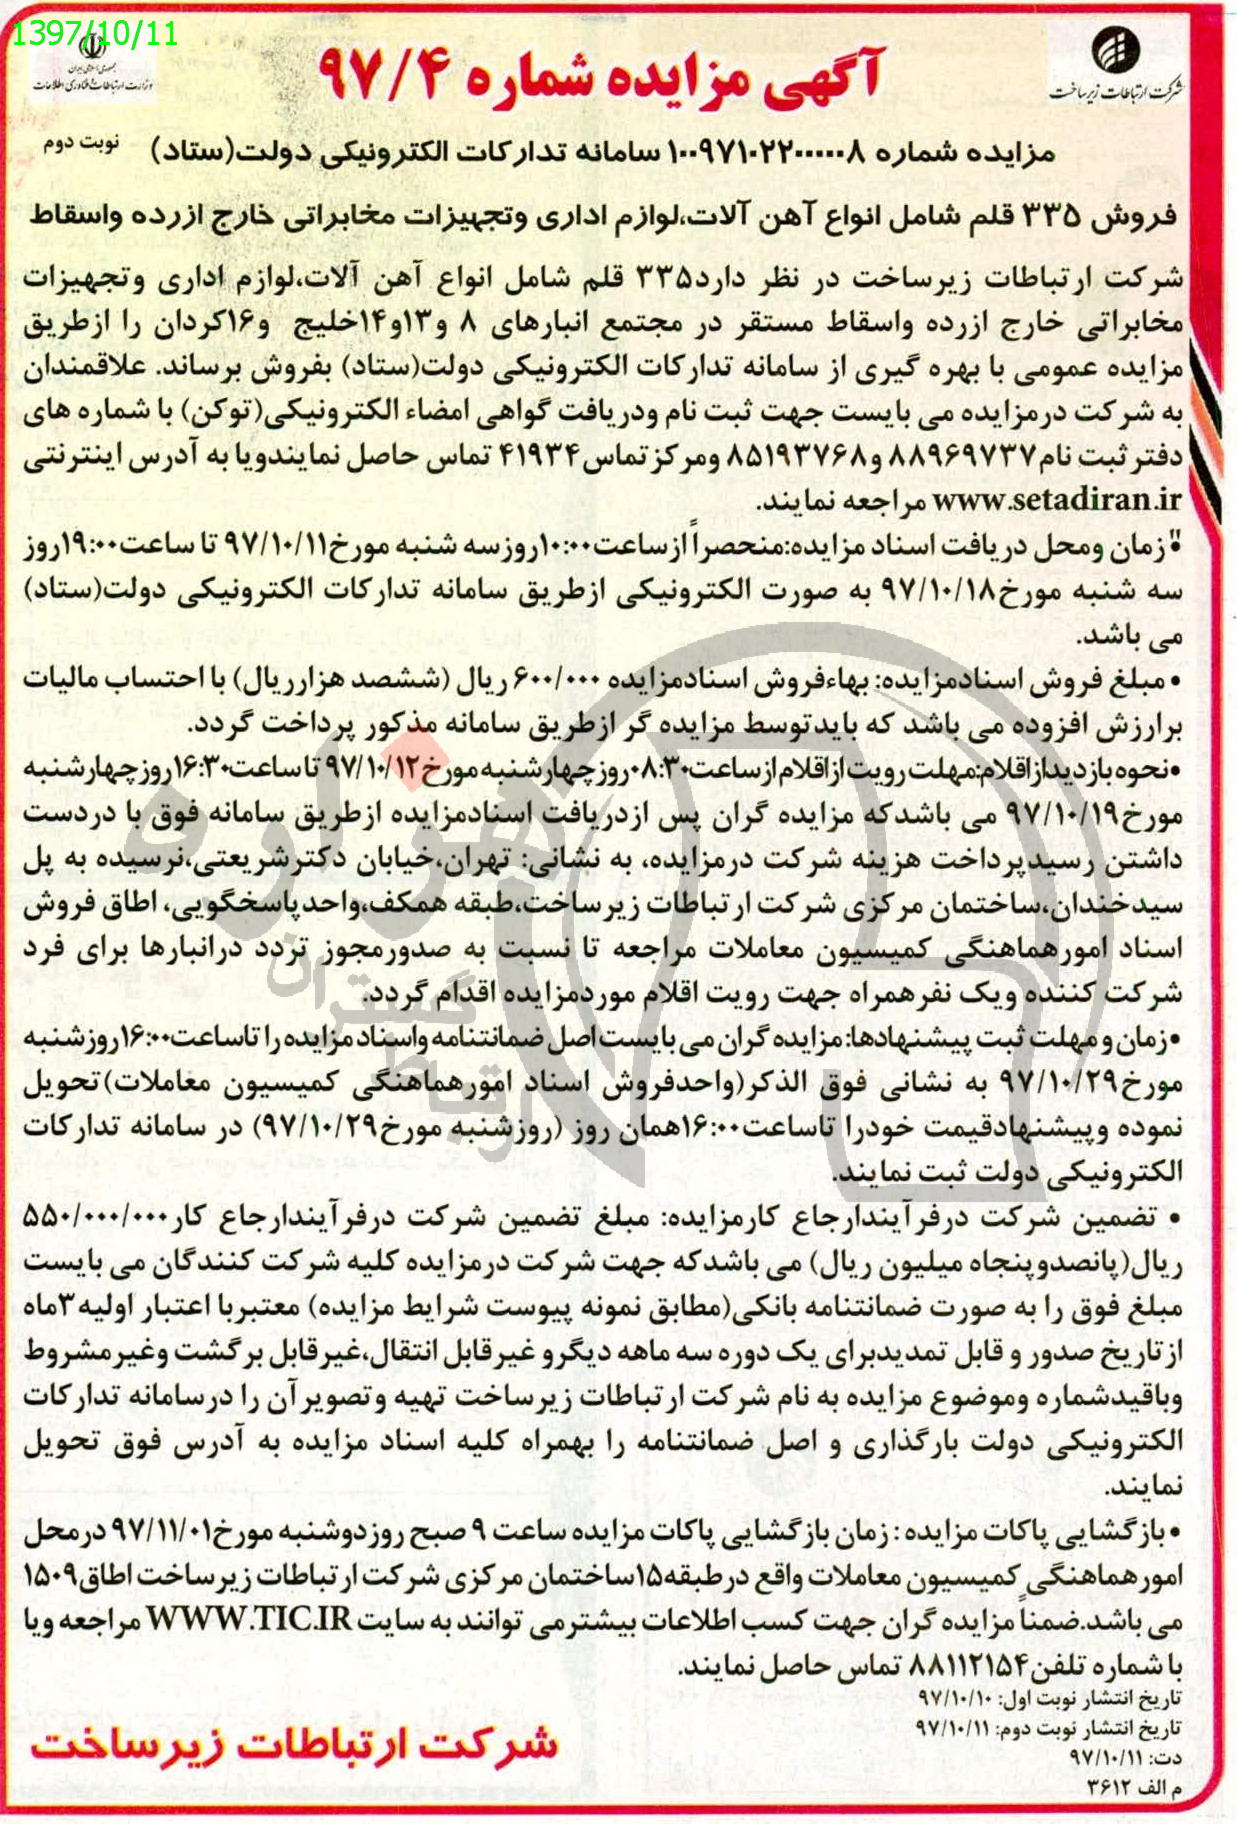 1397/10/11
جمهوری اسلامی ایران
وزارت ارتباطات و فناوری اطلاعات
شرکت ارتباطات زیرساخت
آگهی مزایده شماره ۹۷/۴
مزایده شماره ۱۰۰۹۷۱۰۲۲۰۰۰۰۰۸ سامانه تدارکات الکترونیکی دولت(ستاد)
نوبت دوم
فروش ۳۳۵ قلم شامل انواع آهن آلات،لوازم اداری وتجهیزات مخابراتی خارج ازرده واسقاط
شرکت ارتباطات زیرساخت در نظر دارد۳۳۵ قلم شامل انواع آهن آلات،لوازم اداری وتجهیزات
مخابراتی خارج ازرده واسقاط مستقر در مجتمع انبارهای ۸ و۱۳و۱۴خلیج و۱۶کردان را ازطریق
مزایده عمومی با بهره گیری از سامانه تدارکات الکترونیکی دولت(ستاد) بفروش برساند. علاقمندان
به شرکت درمزایده می بایست جهت ثبت نام ودریافت گواهی امضاء الکترونیکی(توکن) با شماره های
دفتر ثبت نام۸۸۹۶۹۷۳۷ و۸۵۱۹۳۷۶۸ ومرکز تماس۴۱۹۳۴ تماس حاصل نمایندویا به آدرس اینترنتی
www.setadiran.ir مراجعه نمایند.
• زمان ومحل دریافت اسناد مزایده:منحصراً ازساعت۱۰:۰۰روزسه شنبه مورخ۹۷/۱۰/۱۱ تا ساعت۱۹:۰۰روز
سه شنبه مورخ۹۷/۱۰/۱۸ به صورت الکترونیکی ازطریق سامانه تدارکات الکترونیکی دولت(ستاد)
می باشد.
• مبلغ فروش اسنادمزایده: بهاءفروش اسنادمزایده ۶۰۰/۰۰۰ ریال (ششصد هزارریال) با احتساب مالیات
برارزش افزوده می باشد که بایدتوسط مزایده گر ازطریق سامانه مذکور پرداخت گردد.
•نحوه بازدیدازاقلام:مهلت رویت ازاقلام ازساعت۰۸:۳۰روزچهارشنبه مورخ۹۷/۱۰/۱۲ تا ساعت۱۶:۳۰روزچهارشنبه
مورخ۹۷/۱۰/۱۹ می باشدکه مزایده گران پس ازدریافت اسنادمزایده ازطریق سامانه فوق با دردست
داشتن رسیدپرداخت هزینه شرکت درمزایده، به نشانی: تهران،خیابان دکترشریعتی،نرسیده به پل
سیدخندان،ساختمان مرکزی شرکت ارتباطات زیرساخت،طبقه همکف،واحدپاسخگویی، اطاق فروش
اسناد امورهماهنگی کمیسیون معاملات مراجعه تا نسبت به صدورمجوز تردد درانبارها برای فرد
شرکت کننده ویک نفرهمراه جهت رویت اقلام موردمزایده اقدام گردد.
•زمان و مهلت ثبت پیشنهادها: مزایده گران می بایست اصل ضمانتنامه واسناد مزایده را تاساعت۱۶:۰۰روزشنبه
مورخ۹۷/۱۰/۲۹ به نشانی فوق الذکر(واحدفروش اسناد امورهماهنگی کمیسیون معاملات)تحویل
نموده وپیشنهادقیمت خودرا تاساعت۱۶:۰۰همان روز (روزشنبه مورخ۹۷/۱۰/۲۹) در سامانه تدارکات
الکترونیکی دولت ثبت نمایند.
• تضمین شرکت درفرآیندارجاع کارمزایده: مبلغ تضمین شرکت درفرآیندارجاع کار۵۵۰/۰۰۰/۰۰۰
ریال(پانصدوپنجاه میلیون ریال) می باشدکه جهت شرکت درمزایده کلیه شرکت کنندگان می بایست
مبلغ فوق را به صورت ضمانتنامه بانکی(مطابق نمونه پیوست شرایط مزایده) معتبربا اعتبار اولیه۳ماه
ازتاریخ صدور و قابل تمدیدبرای یک دوره سه ماهه دیگرو غیرقابل انتقال،غیرقابل برگشت وغیرمشروط
وباقیدشماره وموضوع مزایده به نام شرکت ارتباطات زیرساخت تهیه وتصویرآن را درسامانه تدارکات
الکترونیکی دولت بارگذاری و اصل ضمانتنامه را بهمراه کلیه اسناد مزایده به آدرس فوق تحویل
نمایند.
•بازگشایی پاکات مزایده : زمان بازگشایی پاکات مزایده ساعت ۹ صبح روزدوشنبه مورخ۹۷/۱۱/۰۱ درمحل
امورهماهنگی کمیسیون معاملات واقع درطبقه۱۵ساختمان مرکزی شرکت ارتباطات زیرساخت اطاق۱۵۰۹
می باشد.ضمناً مزایده گران جهت کسب اطلاعات بیشترمی توانند به سایت WWW.TIC.IR مراجعه ویا
با شماره تلفن۸۸۱۱۲۱۵۴ تماس حاصل نمایند.
تاریخ انتشار نوبت اول: ۹۷/۱۰/۱۰
تاریخ انتشار نوبت دوم: ۹۷/۱۰/۱۱
دت: ۹۷/۱۰/۱۱
م الف ۳۶۱۲
شرکت ارتباطات زیرساخت